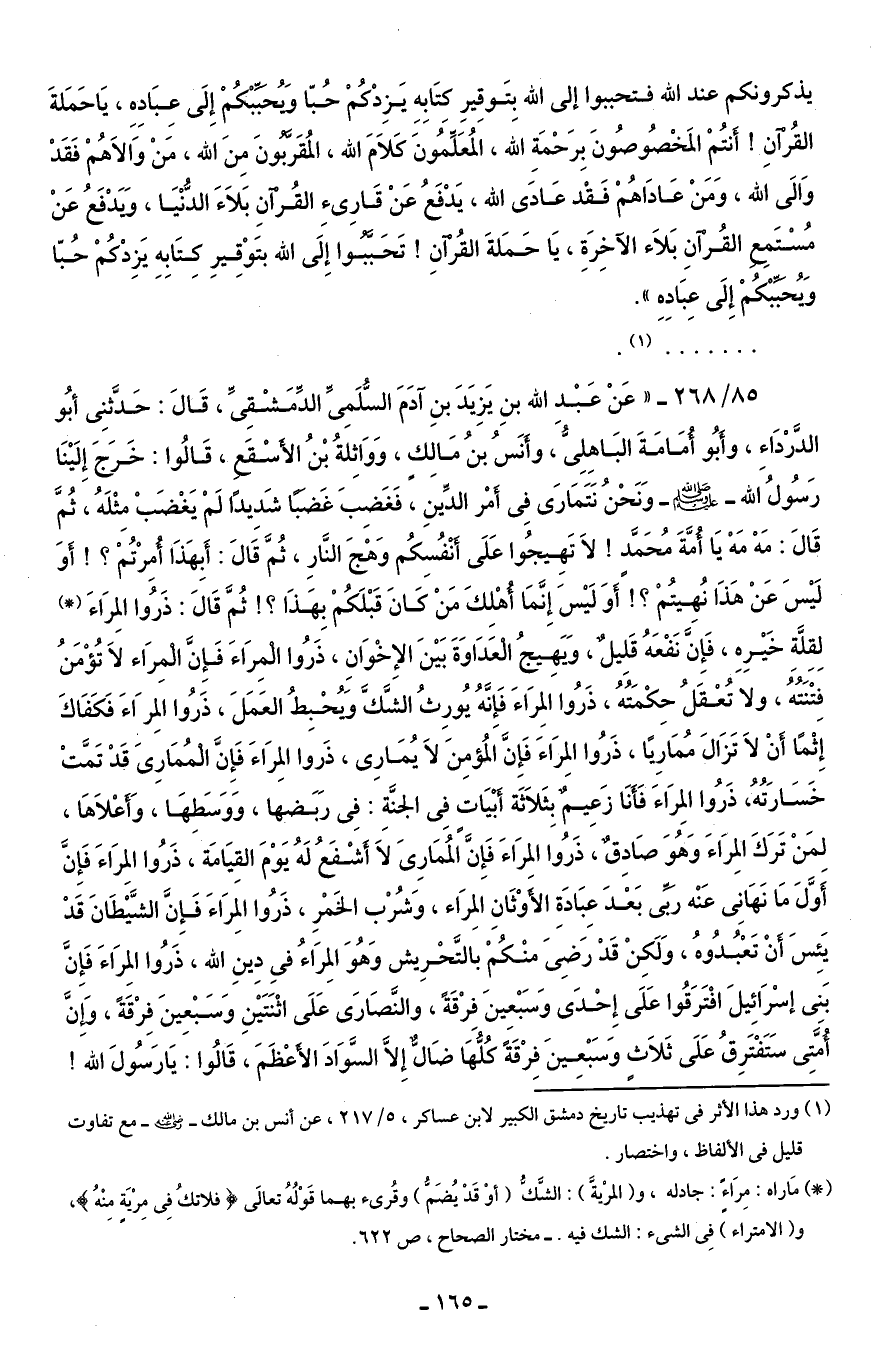 يذكرونكم عند الله فـتحببوا إلى الله بِتَـوقيرِ كِتَابِه يَـزِدْكُمْ حُبًا وَيُحَبِّبْكُمْ إِلَى عِـبَادِهِ ، يَاحَمَلَةَ
القُرْآنِ ! أَنْتُمْ المَخْصُوصُونَ بِرَحْمَةِ الله ، المُعَلِّمُونَ كَلاَمَ الله ، المُقَرَّبُونَ مِنَ الله ، مَنْ وَالاَهُمْ فَقَدْ
وَالَى الله ، وَمَنْ عَادَاهُمْ فَـقَدْ عَادَى الله ، يَدْفَعُ عَنْ قَارِىءِ القُـرآنِ بَلاَءَ الدُّنْيَا ، وَيَدْفَعُ عَنْ
مُسْتَمِعِ القُـرآنِ بَلاَء الآخِرَةِ ، يَا حَـمَلَةَ القُرْآنِ ! تَحَبَّبُـوا إِلَى الله بِتَوْقِيـرِ كِـتَابِهِ يَزِدْكُمْ حُـبًا
وَيُحَبِّبْكُمْ إِلَى عِبَادِهِ » .
. . . . . . . (١) .
٢٦٨/٨٥ ـ « عَنْ عَبْـدِ الله بنِ يَزِيَدَ بنِ آدَمَ السُّلَمِىِّ الدِّمَشْقِىِّ ، قَالَ : حَدثَّنِى أَبُو
الدَّرْدَاءِ ، وَأَبُو أُمَامَـةَ البَـاهِلِىُّ ، وَأَنَسُ بنُ مَـالِكٍ ، وَوَاثِلَةُ بْنُ الأَسْـقَعِ ، قَـالُوا : خَـرَجَ إِلَيْنَا
رَسُولُ الله ـ ﷺ ـ وَنَحْنُ نَتَمَارَى فِى أَمْرِ الدِّينِ ، فَغَضِبَ غَضَبًا شَدِيدًا لَمْ يَغْضَبْ مِثْلَهُ ، ثُمَّ
قَالَ : مَهْ مَهْ يَا أُمَّةَ مُحَمَّدٍ ! لاَ تَهِـيجُوا عَلَى أَنْفُسِكُم وَهْجَ النَّارِ ، ثُمَّ قَالَ : أَبِهَذَا أُمِرْتُمْ ؟ ! أَوَ
لَيْسَ عَنْ هَذَا نُهِيتُمْ ؟ ! أَوَ لَيْسَ إِنَّمَا أُهْلِكَ مَنْ كَـانَ قَبْلَكُمْ بِهَـذَا ؟ ! ثُمَّ قَالَ : ذَرُوا المِرَاءَ (*)
لِقِلَّةِ خَيْـرِهِ ، فَإِنَّ نَفْعَهُ قَلِيلٌ ، وَيَهِيجُ الْعَدَاوَةَ بَيْنَ الإِخْوَانِ ، ذَرُوا المِـرَاءَ فَـإِنَّ الْمِرَاءَ لاَ تُؤْمَنُ
فِتْنَتُهُ ، ولا تُعْـقَلُ حِكْمَتُهُ ، ذَرُوا المِرَاءَ فَإِنَّهُ يُورِثُ الشَّكَّ وَيُحْـبِطُ العَمَلَ ، ذَرُوا المِرَاءَ فَكَفَاكَ
إِثْمًا أَنْ لاَ تَزَالَ مُمَارِيًا ، ذَرُوا المِرَاءَ فَإِنَّ المُؤْمِنَ لاَ يُمَـارِى ، ذَرُوا المِرَاءَ فَإِنَّ الْمُمَارِىَ قَدْ تَمَّتْ
خَسَـارَتُهُ، ذَرُوا المِرَاءَ فَأَنَا زَعِيـمٌ بِثَلاَثَةِ أَبْيَاتٍ فِى الجَنَّةِ : فِى رَبَـضِها ، وَوَسَطِهَـا ، وَأَعْلاَهَا ،
لِمَنْ تَرَكَ المِرَاءَ وَهُوَ صَادِقٌ ، ذَرُوا المِرَاءَ فَإِنَّ الْمُمَارِىَ لاَ أَشْفَعُ لَهُ يَوْمَ القِيَامَةِ ، ذَرُوا المِرَاءَ فَإِنَّ
أَوَّلَ مَا نَهَانِى عَنْه رَبِّى بَعْـدَ عِبَادَةِ الأَوْثَانِ المِرَاء ، وَشُرْبِ الخَمْرِ ، ذَرُوا المِرَاءَ فَـإِنَّ الشَّيْطَانَ قَدْ
يَئِسَ أَنْ تَعْبُـدُوهُ ، وَلَكِنْ قَدْ رَضِىَ مِنْـكُمْ بِالتَّحْرِيشِ وَهُوَ المِرَاءُ فِى دِينِ الله ، ذَرُوا المِرَاءَ فَإِنَّ
بَنِى إِسْرَائِيلَ افْتَرَقُوا عَلَى إِحْـدَى وَسَبْعِينَ فِرْقَةً ، والنَّصَارَى عَلَى اثْنَتَيْنِ وَسَـبْعِينَ فِرْقَةً ، وَإِنَّ
أُمَّتِى سَتَفْتَرِقُ عَلَى ثَلاَثٍ وَسَبْعِـينَ فِرْقَةً كُلُّهَا ضَالٌّ إِلاَّ السَّوَادَ الأَعْظَمَ ، قَالُوا : يَارَسُولَ الله !
(١) ورد هذا الأثر فى تهذيب تاريخ دمشق الكبير لابن عساكر ، ٢١٧/٥ ، عن أنس بن مالك ـ رضي الله عنه ـ مع تفاوت
قليل فى الألفاظ ، واختصار .
(*) مَاراه : مِرَاءً : جادله ، و( المرْيةَ ) : الشَّكُّ ( أوْ قَدْ يُضَمُّ ) وقُرِىء بهما قَوْلُهُ تعالَى ﴿ فلاتكُ فِى مِرْيَةٍ مِنْهُ ﴾ ،
و( الامتراء ) فِى الشىء : الشك فيه . ـ مختار الصحاح ، ص ٦٢٢ .
ـ ١٦٥ ـ